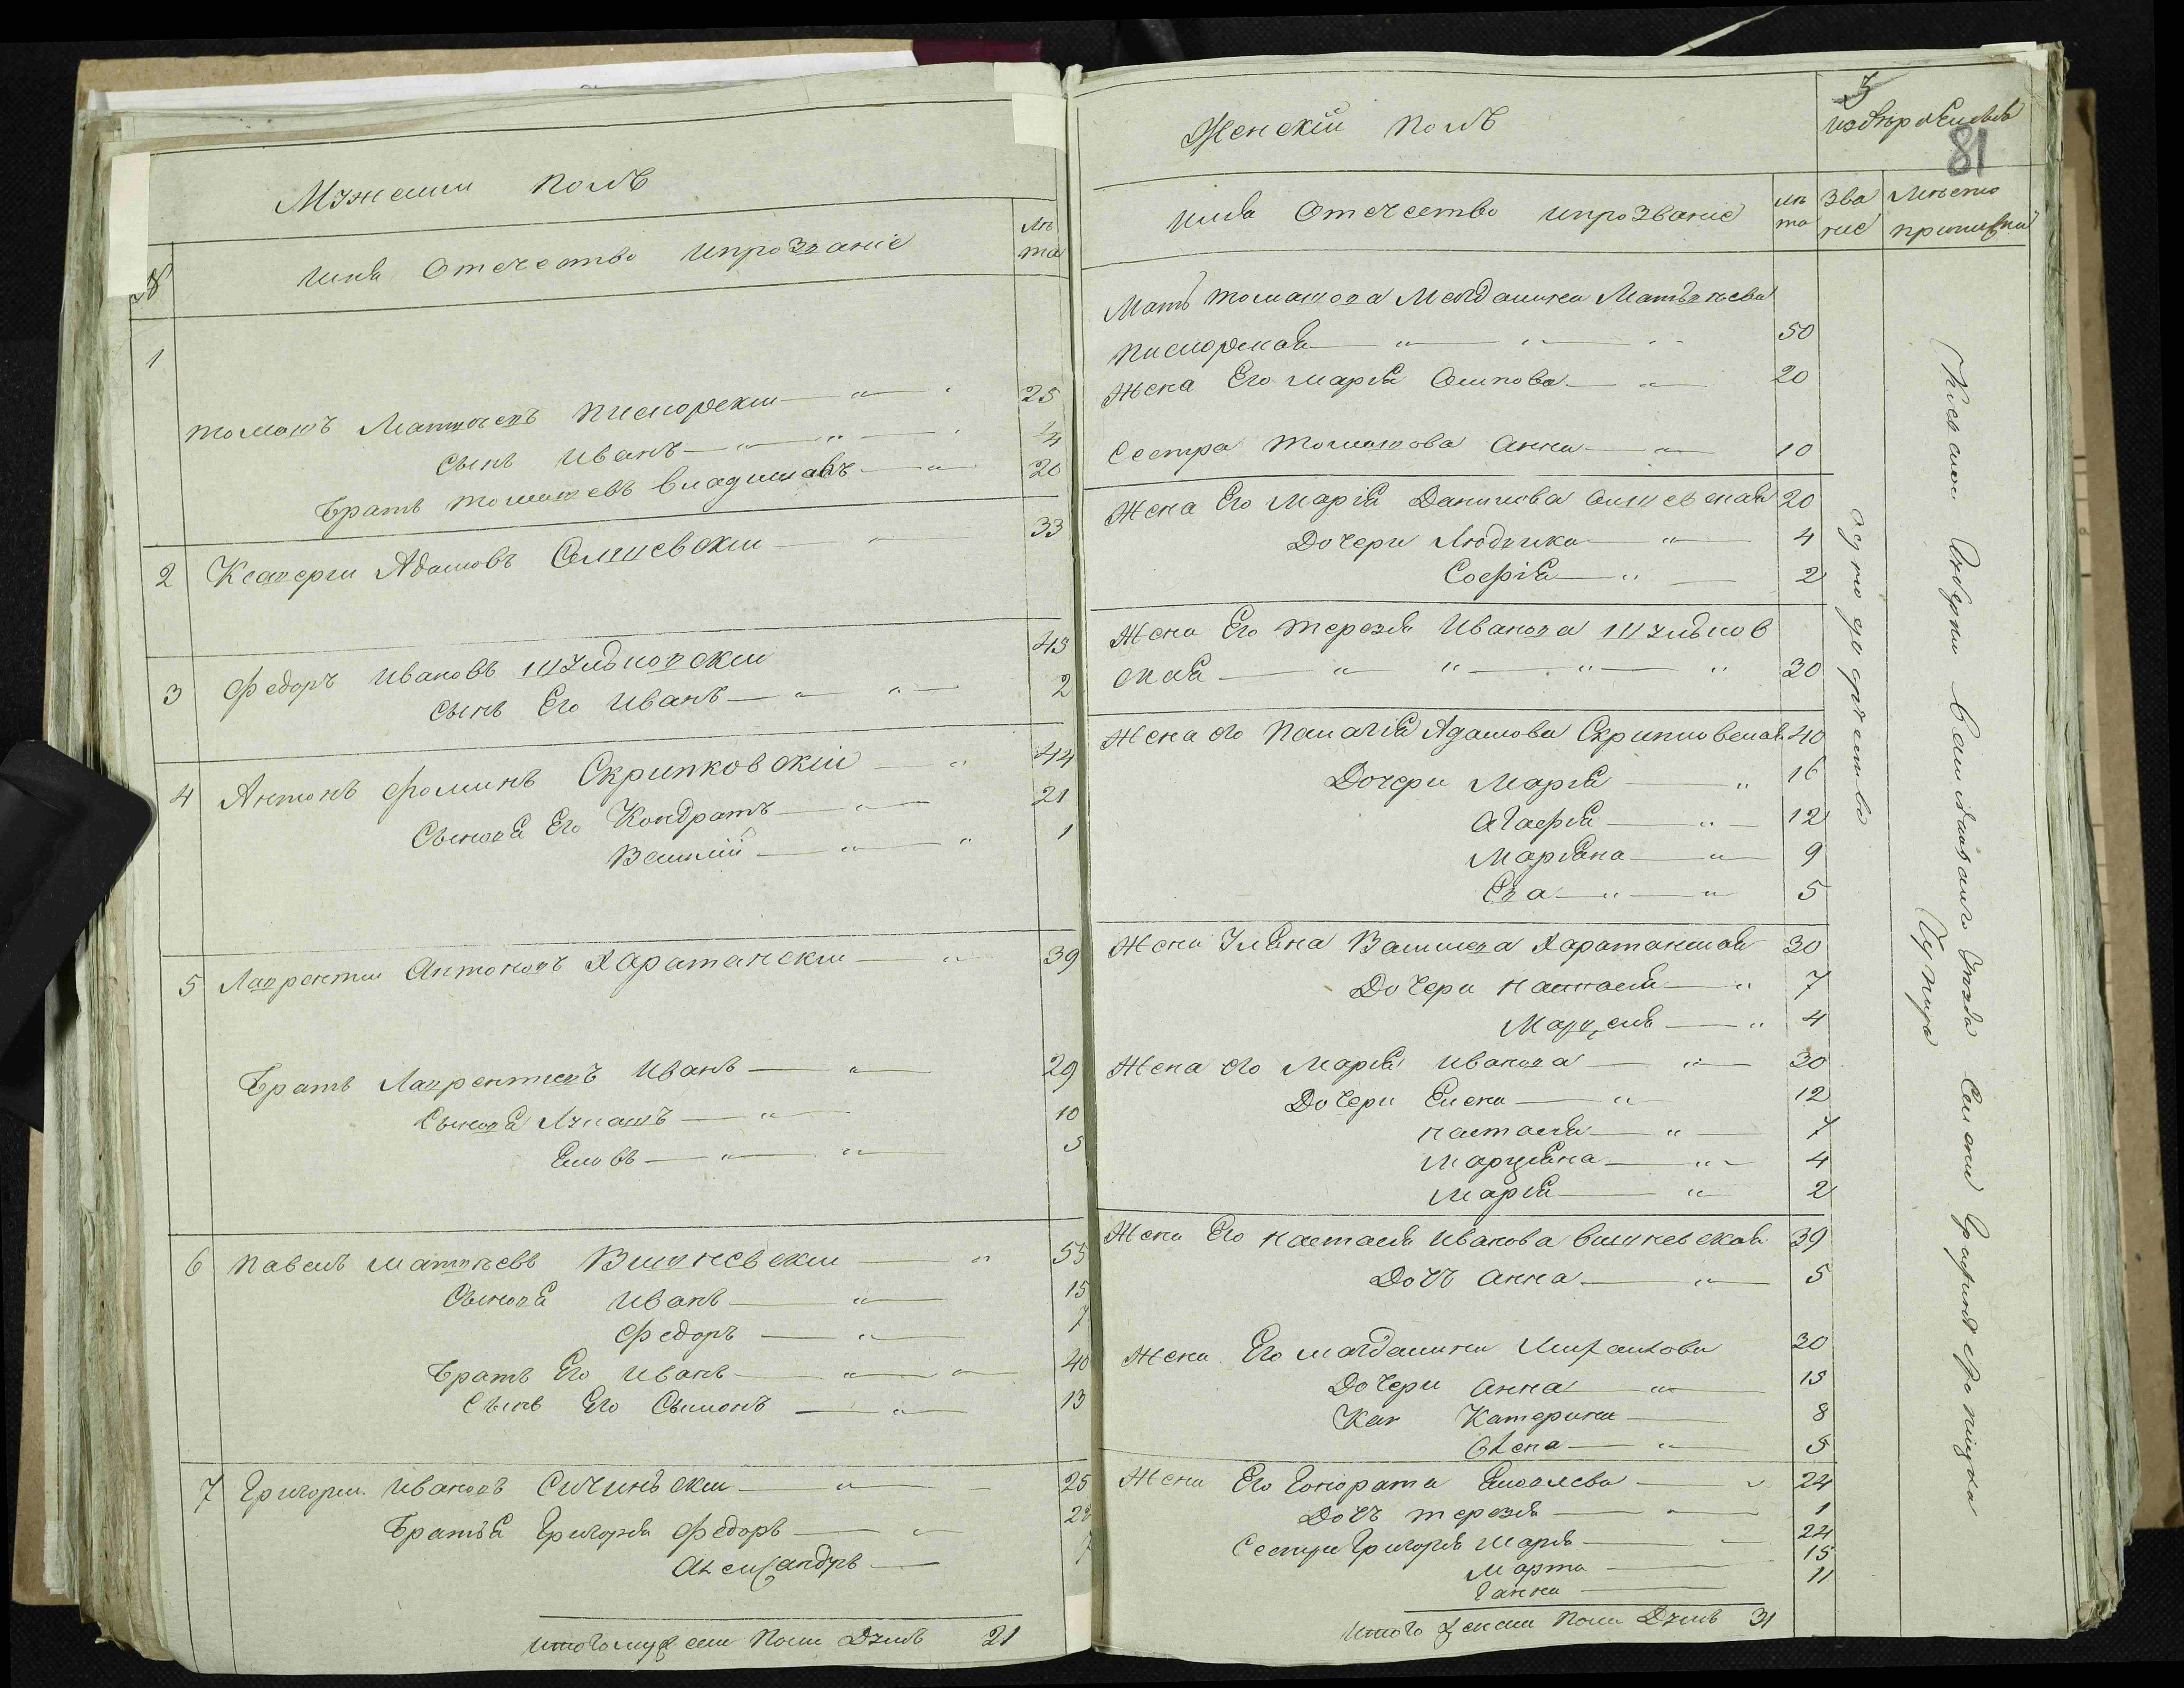 Мужеший полъ
№
Имя Отечество ипрозваніе
лѣ
та
1
Томашъ Матвѣевъ Писпорскии 25
Сынъ Иванъ
Братъ Томашевъ Владиславъ 20
2 Ксаверги Адамовъ Олшевскии 33
3 Федоръ Ивановъ Шумновскии 43
Сынъ Его Иванъ 2
4 Антонъ Фоминъ Скрипковскій 44
Сыновя Его Кондратъ 21
Велилій 1
5 Лаврентии Антоновъ Харатанскии 39
Братъ Лаврентиевъ Иванъ 29
Сыновя Лукашъ 10
Яковъ 5
6 Павелъ Матвѣевъ Вишневскии 55
Сыновя Иванъ 15
Федоръ 7
Братъ Его Иванъ 40
Сынъ Его Сымонъ 13
7 Григории Ивановъ Сичинъскии 25
Братья Григория Федоръ
Александръ 7
Итого мужескии Полъ Душъ 21
Женскій полъ
3
81
Имя Отечество ипрозваніе
лѣ
та
Зва
ніе
Мѣсто
прописки
Мать Томашова Магдалина Матвѣева
Писпорская 50
Жена Его Марія Осипова 20
Сестра Томашова Анна 10
Жена Его Марія Данилова Олшевская 20
Дочери Людвика 4
Софія 2
Жена Его Терезя Иванова Шумнов
ская 30
Жена его Палагія Адамова Скрипковская 40
Дочери Марія 16
Агафія 12
Маріяна 9
Ева 5
Жена Уляна Василева Харатанская 30
Дочери Настася 7
Марцеля 4
Жена его Марія Иванова 30
Дочери Елена 12
Настася 7
Марцеяна 4
Марія 2
Жена Его Настася Иванова Вишневская 39
Дочъ Анна 5
Жена Его Магдалина Михаилова 30
Дочери Анна 15
Катерина 8
Олена 5
Жена Его Гонората Яковлева 24
Дочъ Терезя 1
Сестры Григория Маря 24
Марта 15
Ганна 11
Итого женскии Полъ Душъ 31
Киевской Губерніи Уѣзда